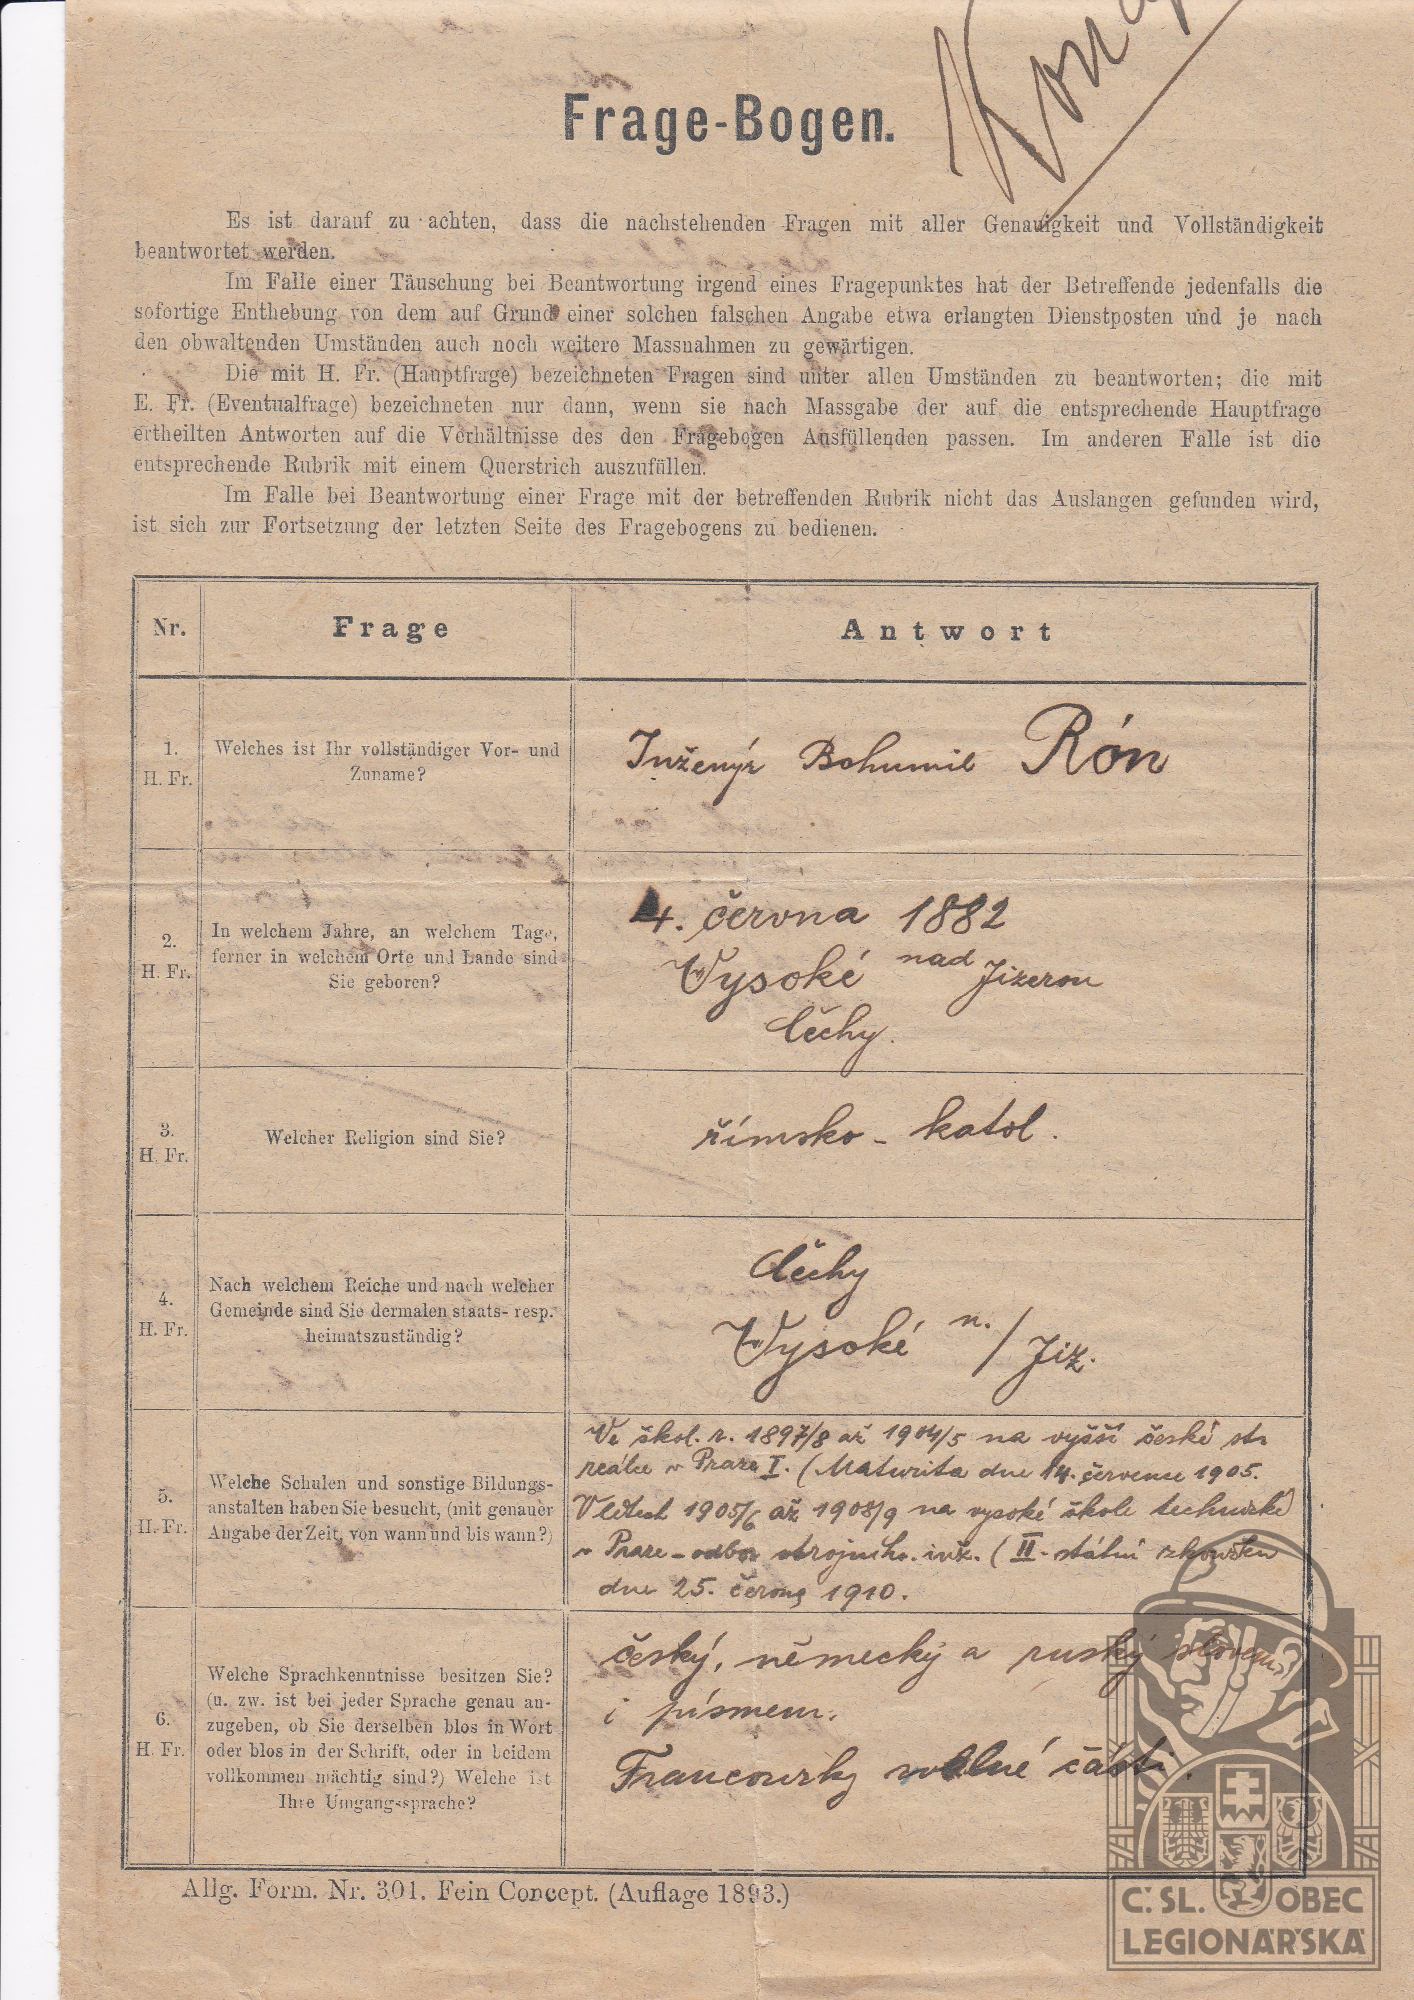 Frage-Bogen.
Es ist darauf zu achten, dass die nachstehenden Fragen mit aller Genauigkeit und Vollständigkeit
beantwortet werden.
Im Falle einer Täuschung bei Beantwortung irgend eines Fragepunktes hat der Betreffende jedenfalls die
sofortige Enthebung von dem auf Grund einer solchen falschen Angabe etwa erlangten Dienstposten und je nach
den obwaltenden Umständen auch noch weitere Massnahmen zu gewärtigen.
Die mit H. Fr. (Hauptfrage) bezeichneten Fragen sind unter allen Umständen zu beantworten; die mit
E. Fr. (Eventualfrage) bezeichneten nur dann, wenn sie nach Massgabe der auf die entsprechende Hauptfrage
ertheilten Antworten auf die Verhältnisse des den Fragebogen Ausfüllenden passen. Im anderen Falle ist die
entsprechende Rubrik mit einem Querstrich auszufüllen.
Im Falle bei Beantwortung einer Frage mit der betreffenden Rubrik nicht das Auslangen gefunden wird,
ist sich zur Fortsetzung der letzten Seite des Fragebogens zu bedienen.
Nr. Frage Antwort
1.
H. Fr.
Welches ist Ihr vollständiger Vor- und
Zuname?
Inženýr Bohumil Rón
2.
H. Fr.
In welchem Jahre, an welchem Tage,
ferner in welchem Orte und Lande sind
Sie geboren?
4. června 1882
Vysoké nad Jizerou
Čechy.
3.
H. Fr.
Welcher Religion sind Sie?
římsko - katol.
4.
H. Fr.
Nach welchem Reiche und nach welcher
Gemeinde sind Sie dermalen staats- resp.
heimatszuständig?
Čechy
Vysoké n./Jiz.
5.
H. Fr.
Welche Schulen und sonstige Bildungs-
anstalten haben Sie besucht, (mit genauer
Angabe der Zeit, von wann und bis wann?)
Ve škol. r. 1897/8 až 1904/5 na vyšší české st.
reálce v Praze I. (Maturita dne 14. července 1905.
V letech 1905/6 až 1908/9 na vysoké škole technické
v Praze - odbor strojního inž. (II. státní zkouška
dne 25. června 1910.
6.
H. Fr.
Welche Sprachkenntnisse besitzen Sie?
(u. zw. ist bei jeder Sprache genau an-
zugeben, ob Sie derselben blos in Wort
oder blos in der Schrift, oder in beidem
vollkommen mächtig sind?) Welche ist
Ihre Umgangssprache?
český, německý a ruský slovem
i písmem.
Francouzský části.
Allg. Form. Nr. 301. Fein Concept. (Auflage 1893.)
Č. SL. OBEC
LEGIONÁŘSKÁ